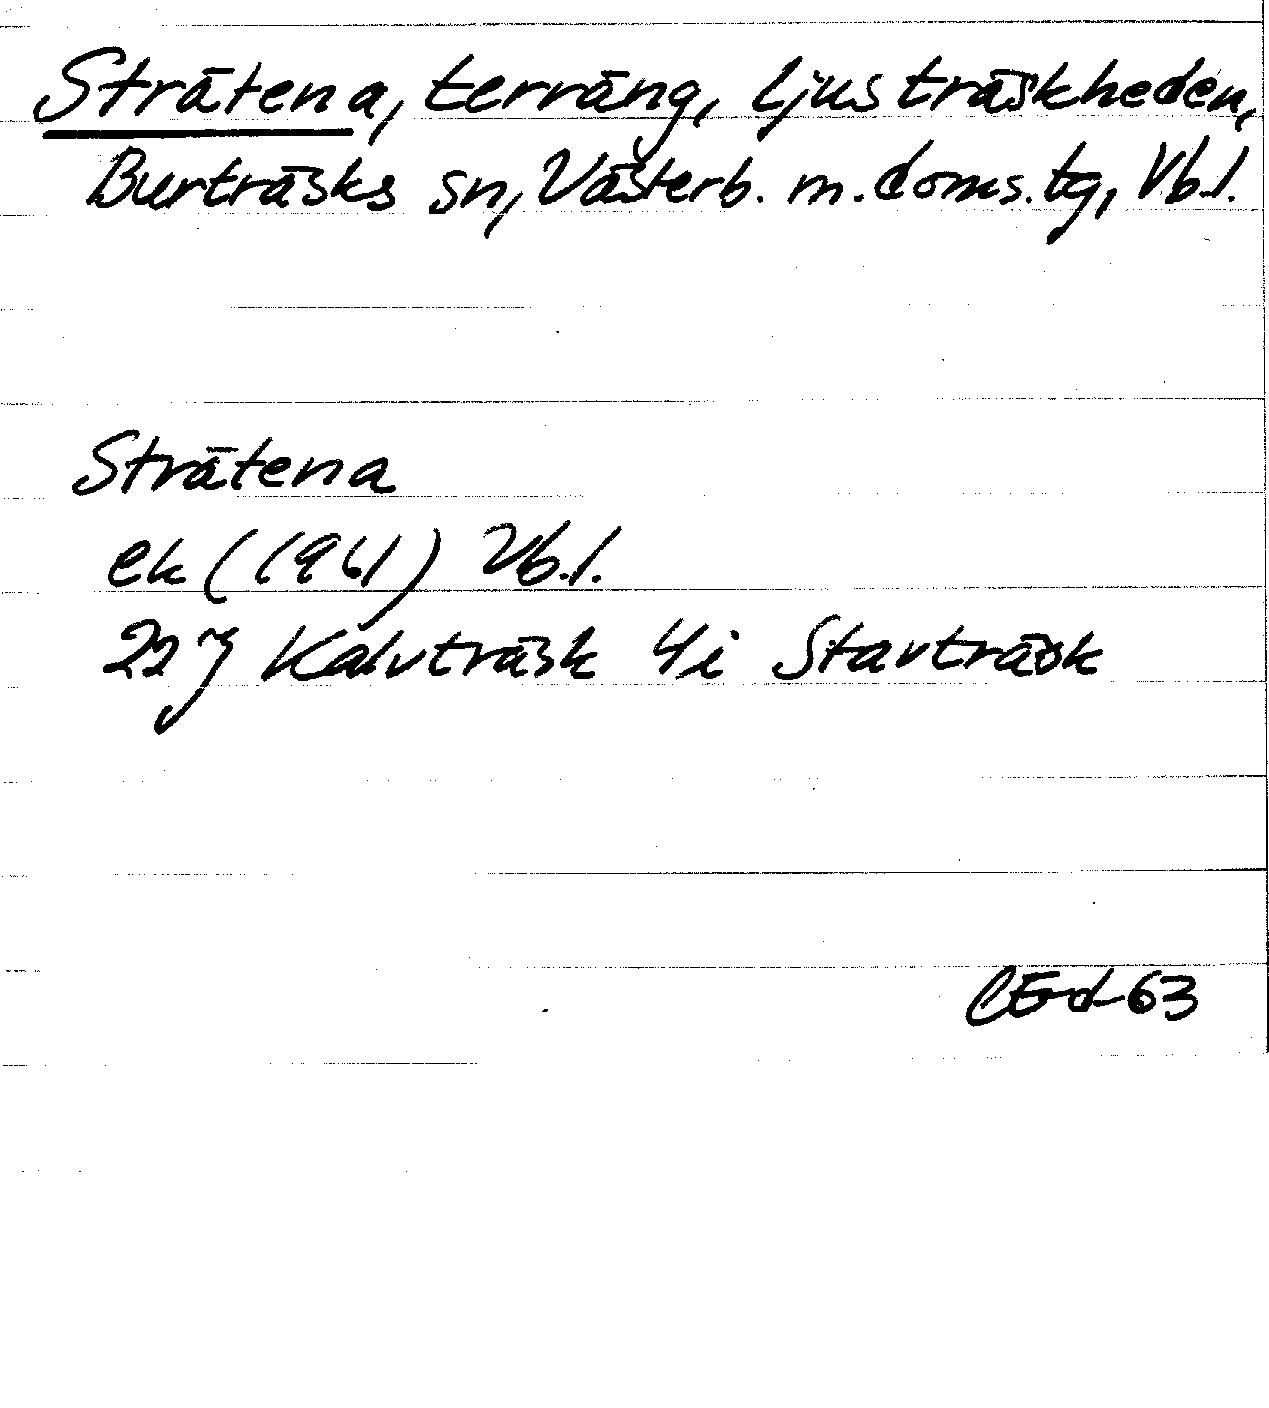 Sträten a, terräng, Ljusträskheden,
Burträsks sn, Västerb. m. doms.tg, Vb.l.
Strätena
ek (1961) Vb.l.
22 J Kalvträsk 4i Stavträsk
CEd-63